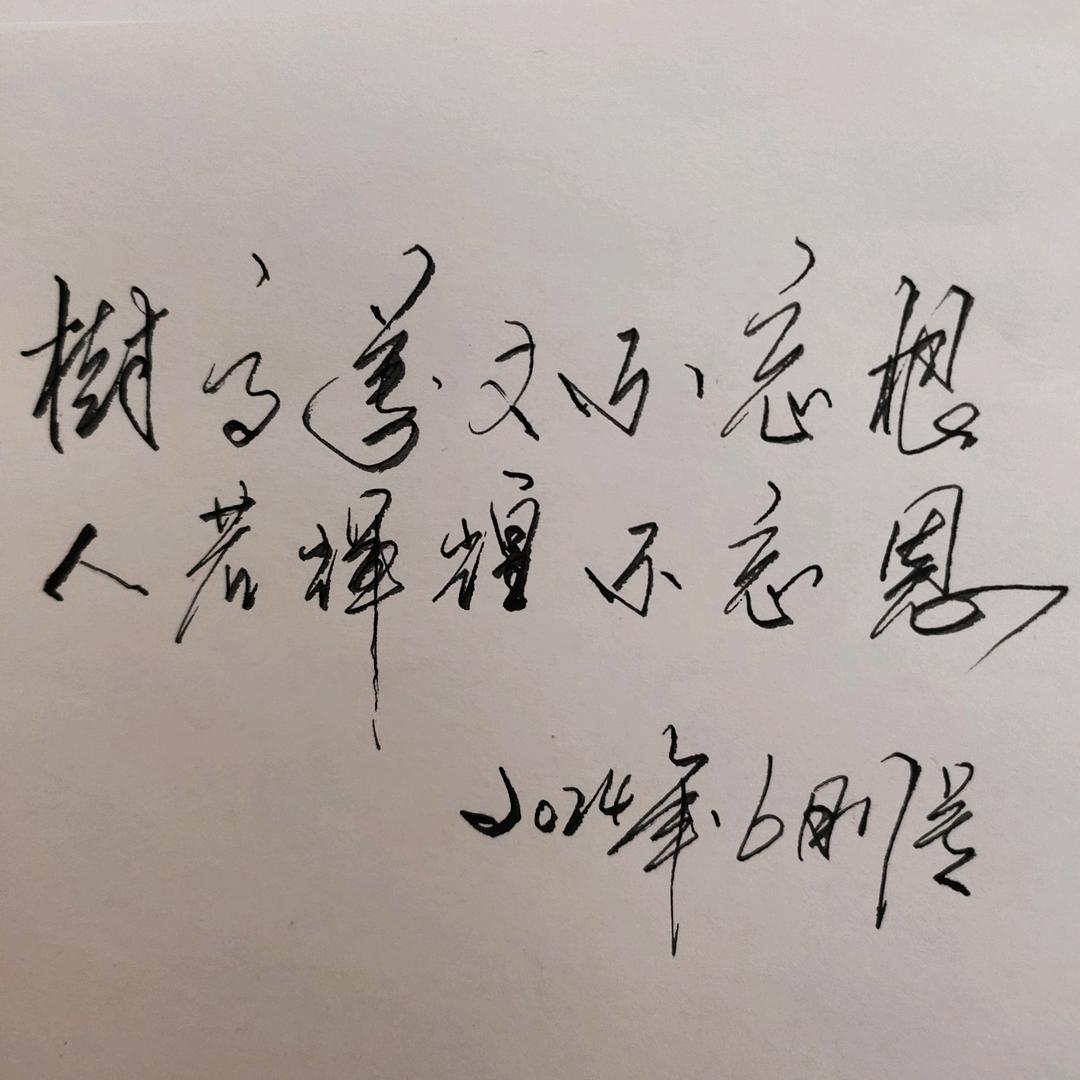 樹高萬丈不忘根
人若輝煌不忘恩
2024年6月17号